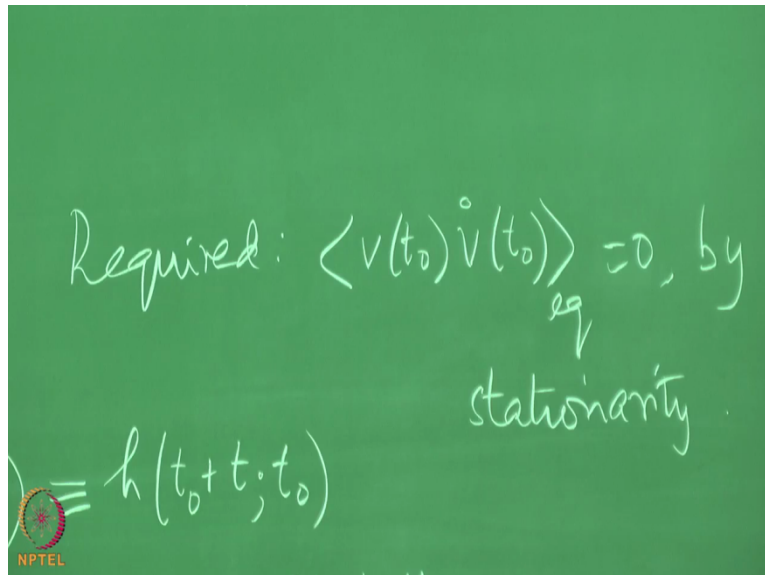 Required: ⟨v(t₀) v̇(t₀)⟩_eq = 0, by
stationarity.
) ≡ h(t₀+t; t₀)
NPTEL